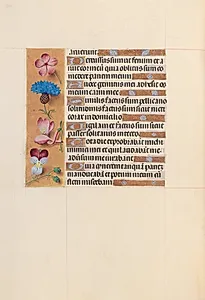 Percussus sum ut fenum et a
ruit cor meum quia oblitus sum co
medere panem meum
A voce gemitus mei adhesit os
meum carni mee
Similis factus sum pellicano
solitudinis factus sum sicut nicti
corax in domicilio
Vigilavi et factus sum sicut
passer solitarius in tecto
Tota die exprobrabant michi
inimici mei et qui laudabant me ad
versum me iurabant
Quia cinerem tanquam panem
manducabam et potum meum cum
fletu miscebam